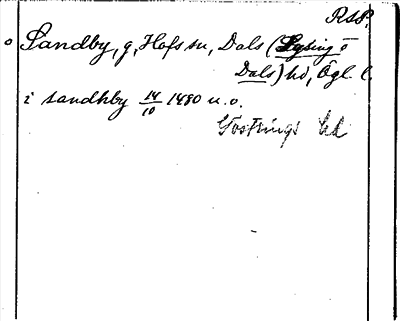 RSP.
Sandby, g, Hofs sn, Dals (Lysing o
Dals) hd, Ögl. l.
i sandhby 14/10 1480 u. o.
Gostrings hd